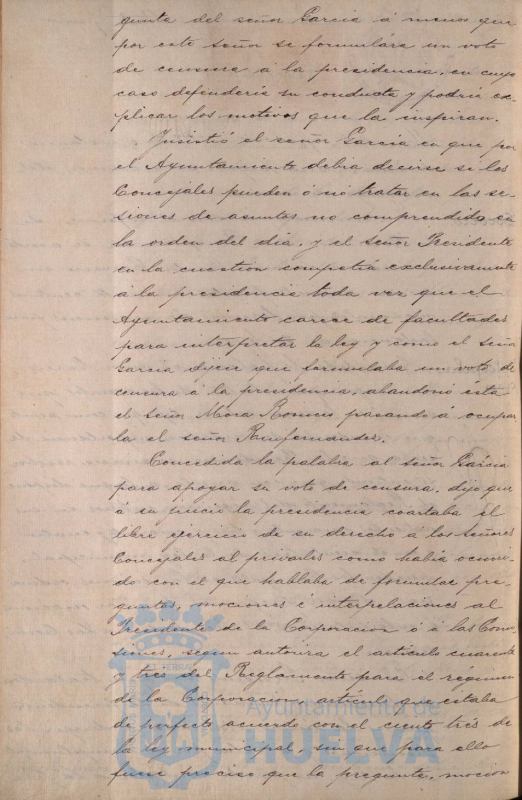 gunta del señor García á menos que
por este señor se formulára un voto
de censura á la presidencia, en cuyo
caso defendería su conducta y podría ex-
plicar los motivos que la inspiran.
Insistió el señor García en que por
el Ayuntamiento debia decirse si los
Concejales pueden ó nó tratar en las se-
siones de asuntos no comprendidos en
la orden del dia, y el señor Presidente
en la cuestion competía exclusivamente
á la presidencia toda vez que el
Ayuntamiento carece de facultades
para interpretar la ley y como el señor
García dijera que formulaba un voto de
censura á la presidencia, abandonó ésta
el señor Mora Romero pasando á ocupar
la el señor
Concedida la palabra al señor García
para apoyar su voto de censura, dijo que
á su juicio la presidencia coartaba el
libre ejercicio de su derecho á los señores
Concejales al privarles como habia ocurri-
do con el que hablaba de formular pre-
guntas, mociones é interpelaciones al
Presidente de la Corporacion ó á las Comi-
siones, segun autoriza el artículo cuarenta
y tres del Reglamento para el régimen
de la Corporacion, artículo que estaba
de perfecto acuerdo con el ciento tres de
la ley municipal, sin que para ello
fuese preciso que la pregunta, mocion
Ayuntamiento de
HUELVA